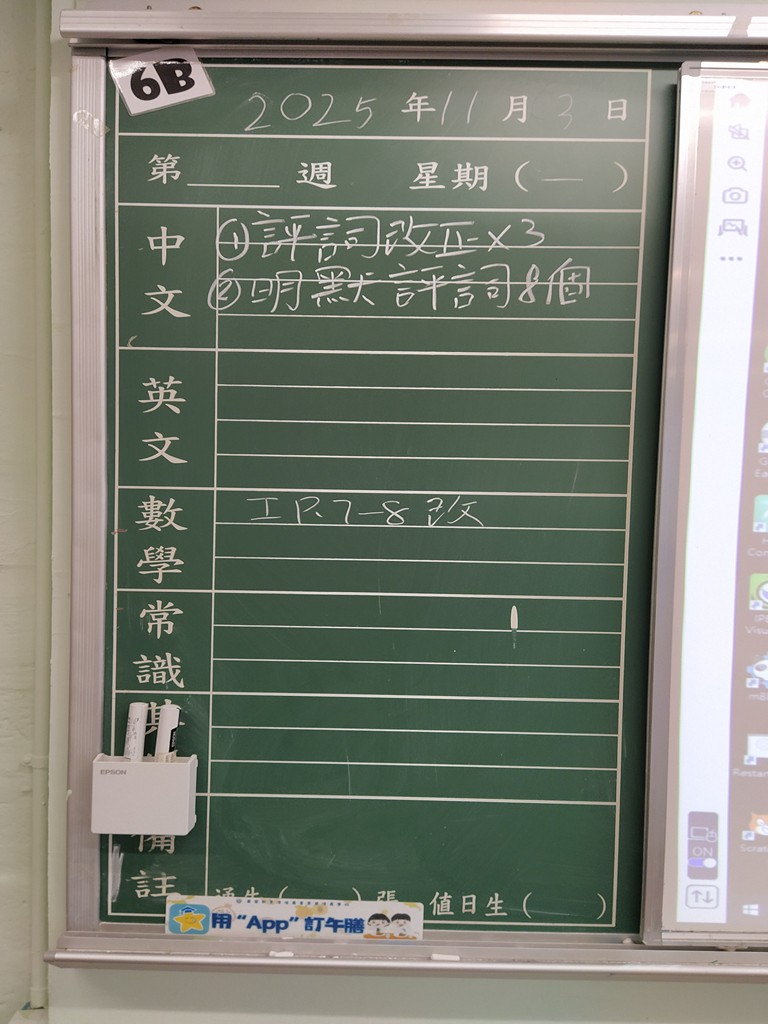 6B
2025 年 11 月 3 日
第 週 星期（一）
中文
①評詞改正×3
②明默評詞8個
英文
數學
工 P.7-8 改
常識
其
EPSON
備註
通告（ ）張 值日生（ ）
用“App”訂午膳
ON